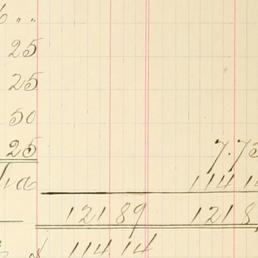 25
25
50
25 7.75
114.14
121 89 121 8
$ 114.14